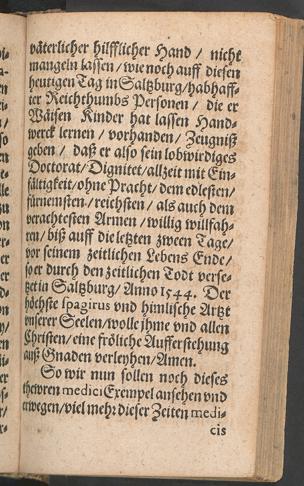 väterlicher hilfflicher Hand / nicht
mangeln lassen / wie noch auff diesen
heutigen Tag in Saltzburg / habhaff-
ter Reichthumbs Personen / die er
Wäisen Kinder hat lassen Hand-
werck lernen / vorhanden / Zeugniß
geben / daß er also sein lobwirdiges
Doctorat / Dignitet / allzeit mit Ein-
fältigkeit / ohne Pracht / dem edlesten /
fürnemsten / reichsten / als auch dem
verachtesten Armen / willig willfah-
ren / biß auff die letzten zween Tage /
vor seinem zeitlichen Lebens Ende /
so er durch den zeitlichen Todt verse-
tzet in Saltzburg / Anno 1544. Der
höchste spagirus vnd himlische Artzt
vnserer Seelen / wolle ihme vnd allen
Christen / eine fröliche Aufferstehung
auß Gnaden verleyhen / Amen.
So wir nun sollen noch dieses
thewren medici Exempel ansehen vnd
erwegen / viel mehr dieser Zeiten medi-
cis